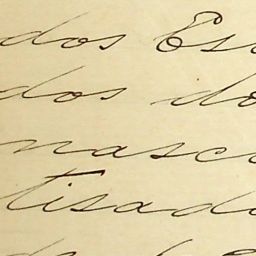 dos Es
dos do
nasc
tisado